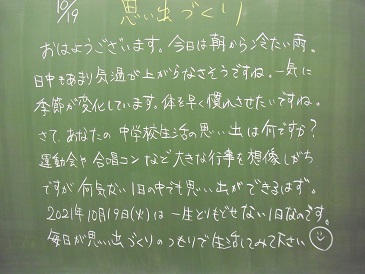 10/19
思い出づくり
おはようございます。今日は朝から冷たい雨。
日中もあまり気温が上がらなさそうですね。一気に
季節が変化しています。体を早く慣れさせたいですね。
さて、あなたの中学校生活の思い出は何ですか?
運動会や合唱コンなど大きな行事を想像しがち
ですが何気ない1日の中でも思い出ができるはず。
2021年10月19日(火)は一生とりもどせない1日なのです。
毎日が思い出づくりのつもりで生活してみて下さい